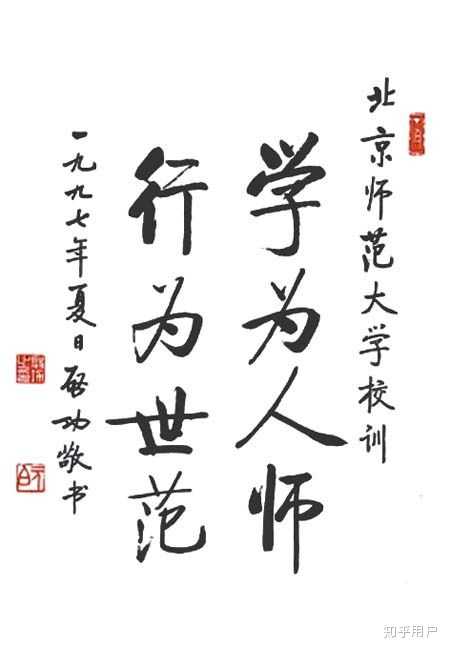 北京师范大学校训
学为人师
行为世范
一九九七年夏日启功敬书
知乎用户